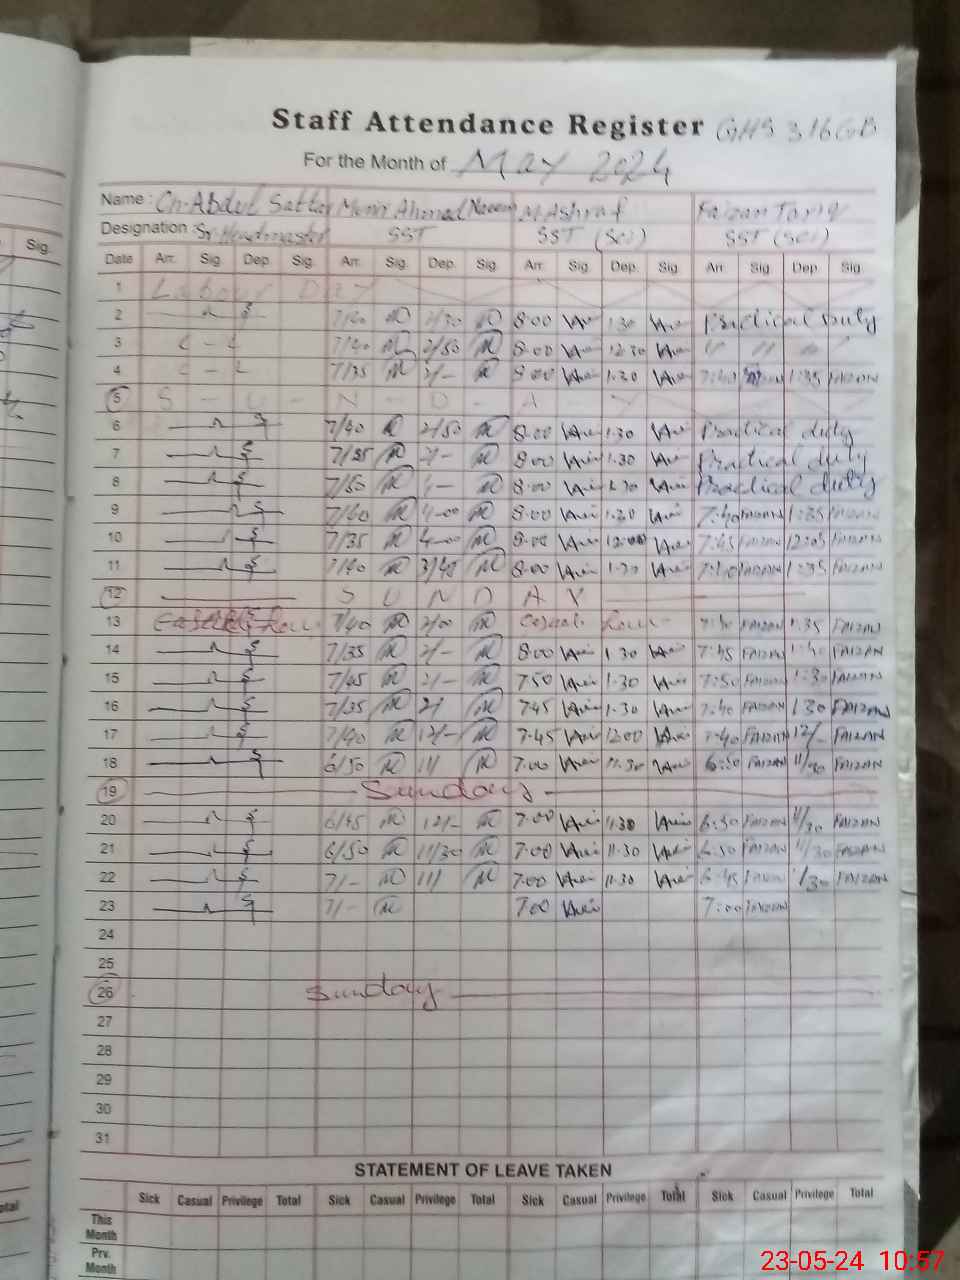 Staff Attendance Register GHS 316GB
For the Month of May 2024
Name : Ch-Abdul Sattar Munir Ahmed Naeem M.Ashraf Faizan Tariq
Designation : Sr. Headmaster SST SST (Sci) SST (Sci)
Sig.
Date Arr. Sig. Dep. Sig. Arr. Sig. Dep. Sig. Arr. Sig. Dep. Sig. Arr. Sig. Dep. Sig.
1 Labour Day
2 2/30 8:00 1:30 Practical Duty
3 7/40 2/50 8:00 12:30 " " "
4 7/35 2/- 8:00 1:30 7:40 1:35 FAIZAN
5 S - U - N - D - A - Y
6 7/40 2/50 8:00 1:30 Practical duty
7 7/35 2/- 8:00 1:30 Practical duty
8 7/50 8:00 1:30 Practical duty
9 7/40 4-00 8:00 1:30 7:40 FAIZAN 1:35 FAIZAN
10 7/35 4-00 8:00 12:00 7:45 FAIZAN 12:05 FAIZAN
11 7/40 3/45 8:00 1:30 7:40 FAIZAN 1:35 FAIZAN
12 S U N D A Y
13 7/40 2/00 FAIZAN 1:35 FAIZAN
14 7/35 2/- 8:00 1:30 7:45 FAIZAN 1:40 FAIZAN
15 7/45 2/- 7:50 1:30 7:50 FAIZAN 1:30 FAIZAN
16 7/35 2/ 7:45 1:30 7:40 FAIZAN 1:30 FAIZAN
17 7/40 12/- 7:45 12:00 7:40 FAIZAN 12/- FAIZAN
18 6/50 11/ 7:00 11:30 6:50 FAIZAN FAIZAN
19 Sunday
20 6/45 12/- 7:00 11:30 6:50 FAIZAN 11/30 FAIZAN
21 6/50 11/30 7:00 11:30 6:50 FAIZAN 11/30 FAIZAN
22 7/- 11/ 7:00 11:30 6:45 FAIZAN FAIZAN
23 7/- 7:00 7:00 FAIZAN
24
25
26 Sunday
27
28
29
30
31
STATEMENT OF LEAVE TAKEN
Sick Casual Privilege Total Sick Casual Privilege Total Sick Casual Privilege Total Sick Casual Privilege Total
This Month
Prv. Month
23-05-24 10:57